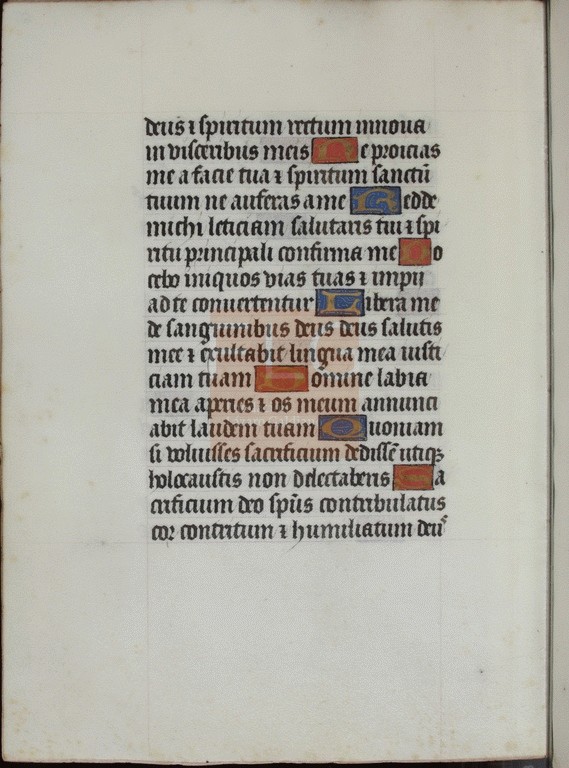 deus ⁊ spiritum rectum innoua
in visceribus meis Ne proicias
me a facie tua ⁊ spiritum sanctū
tuum ne auferas a me Redde
michi leticiam salutaris tui ⁊ spi
ritu principali confirma me Do
cebo iniquos vias tuas ⁊ impii
ad te conuertentur Libera me
de sanguinibus deus deus salutis
mee ⁊ exultabit lingua mea iusti
ciam tuam Domine labia
mea aperies ⁊ os meum annunci
abit laudem tuam Quoniam
si voluisses sacrificium dedissē utiqꝫ
holocaustis non delectaberis Sa
crificium deo sp̄us contribulatus
cor contritum ⁊ humiliatum deūˢ